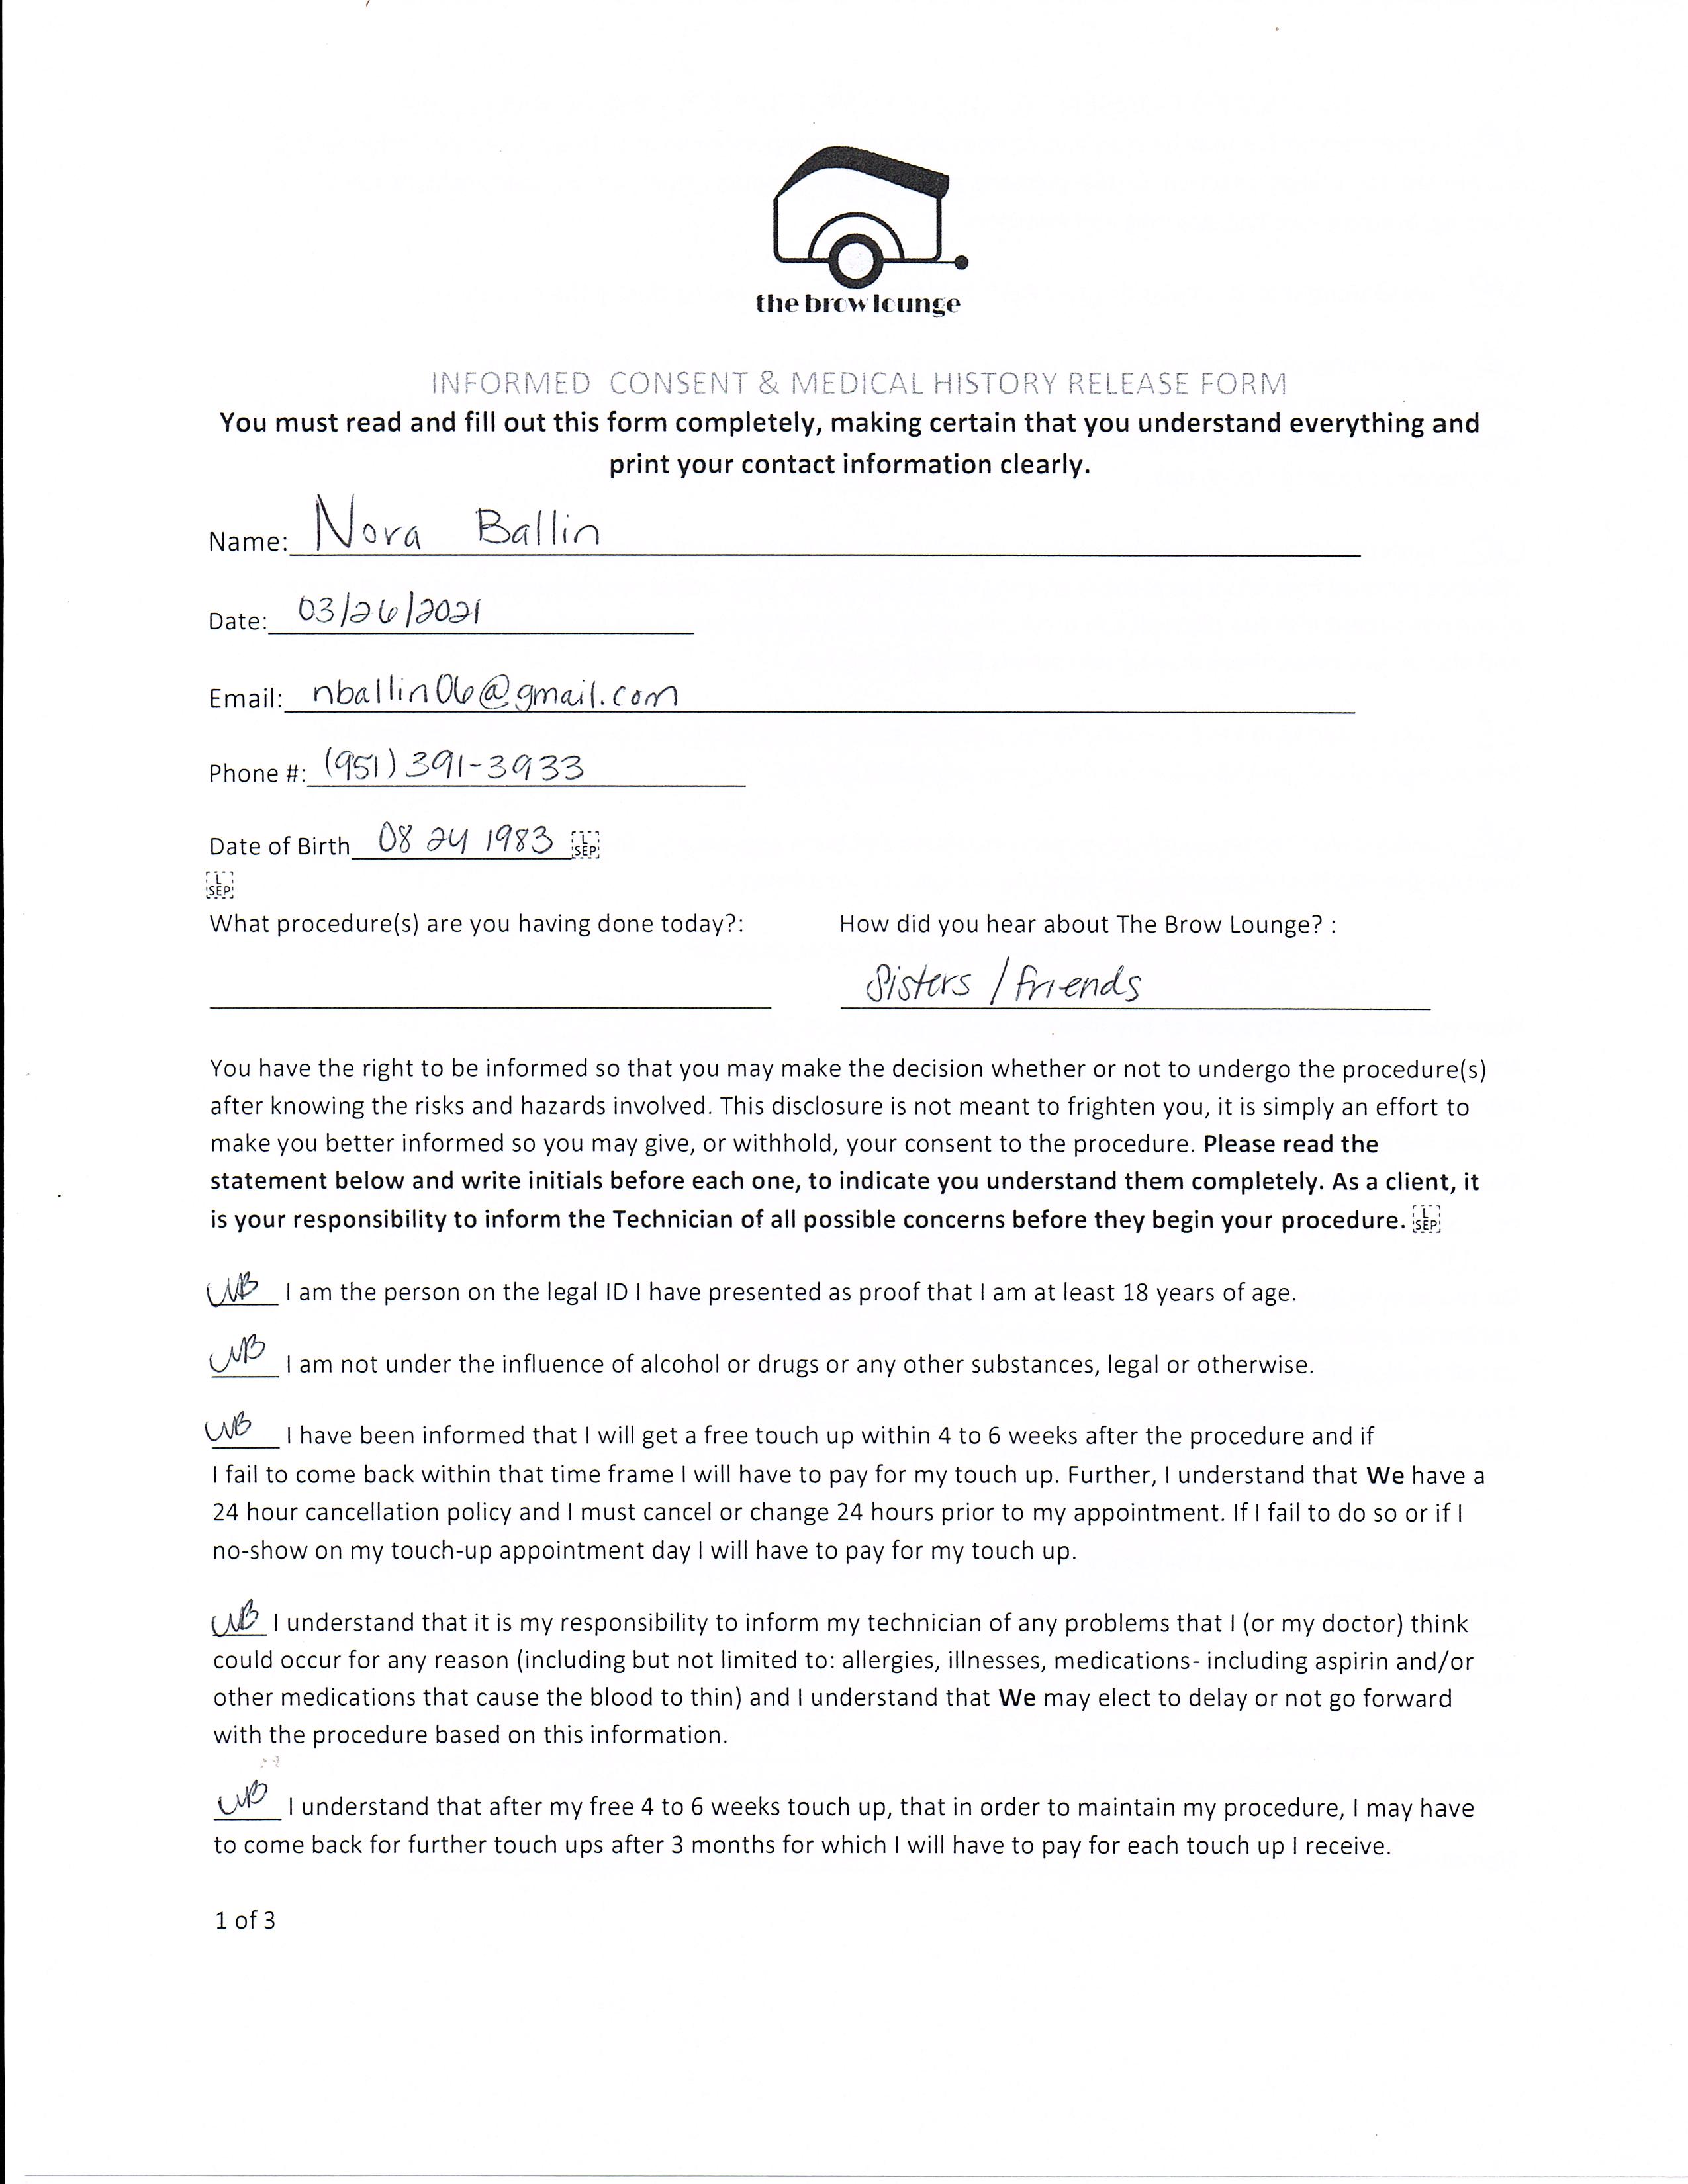 the brow lounge
INFORMED CONSENT & MEDICAL HISTORY RELEASE FORM
You must read and fill out this form completely, making certain that you understand everything and
print your contact information clearly.
Name: Nora Ballin
Date: 03/26/2021
Email: nballin06@gmail.com
Phone #: (951) 391-3933
Date of Birth 08 24 1983 L SEP
L SEP
What procedure(s) are you having done today?: How did you hear about The Brow Lounge? :
Sisters / friends
You have the right to be informed so that you may make the decision whether or not to undergo the procedure(s)
after knowing the risks and hazards involved. This disclosure is not meant to frighten you, it is simply an effort to
make you better informed so you may give, or withhold, your consent to the procedure. Please read the
statement below and write initials before each one, to indicate you understand them completely. As a client, it
is your responsibility to inform the Technician of all possible concerns before they begin your procedure. L SEP
NB I am the person on the legal ID I have presented as proof that I am at least 18 years of age.
NB I am not under the influence of alcohol or drugs or any other substances, legal or otherwise.
NB I have been informed that I will get a free touch up within 4 to 6 weeks after the procedure and if
I fail to come back within that time frame I will have to pay for my touch up. Further, I understand that We have a
24 hour cancellation policy and I must cancel or change 24 hours prior to my appointment. If I fail to do so or if I
no-show on my touch-up appointment day I will have to pay for my touch up.
NB I understand that it is my responsibility to inform my technician of any problems that I (or my doctor) think
could occur for any reason (including but not limited to: allergies, illnesses, medications- including aspirin and/or
other medications that cause the blood to thin) and I understand that We may elect to delay or not go forward
with the procedure based on this information.
NB I understand that after my free 4 to 6 weeks touch up, that in order to maintain my procedure, I may have
to come back for further touch ups after 3 months for which I will have to pay for each touch up I receive.
1 of 3